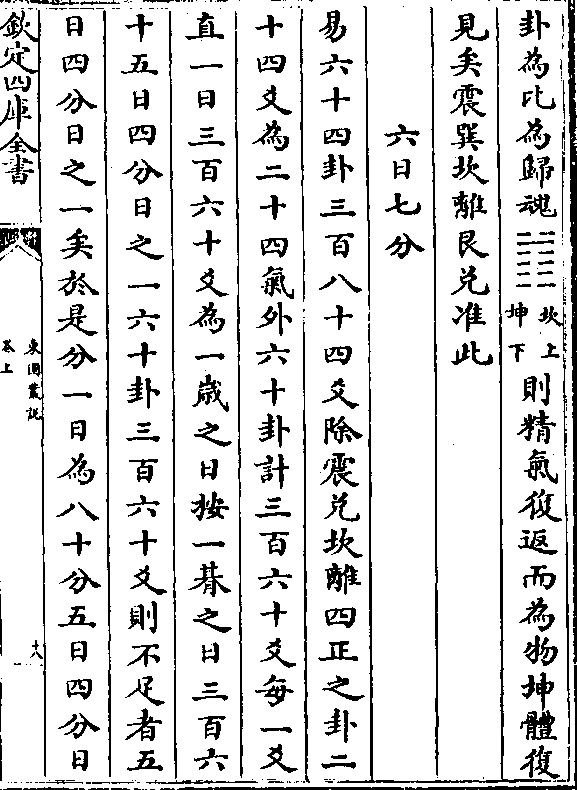 卦為比為歸魂䷇坎上坤下則精氣復返而為物坤體復
見矣震巽坎離艮兑准此
六日七分
易六十四卦三百八十四爻除震兑坎離四正之卦二
十四爻為二十四氣外六十卦計三百六十爻每一爻
直一日三百六十爻為一歳之日按一朞之日三百六
十五日四分日之一六十卦三百六十爻則不足者五
日四分日之一矣於是分一日為八十分五日四分日
欽定四庫全書
東園叢説
卷上
十八